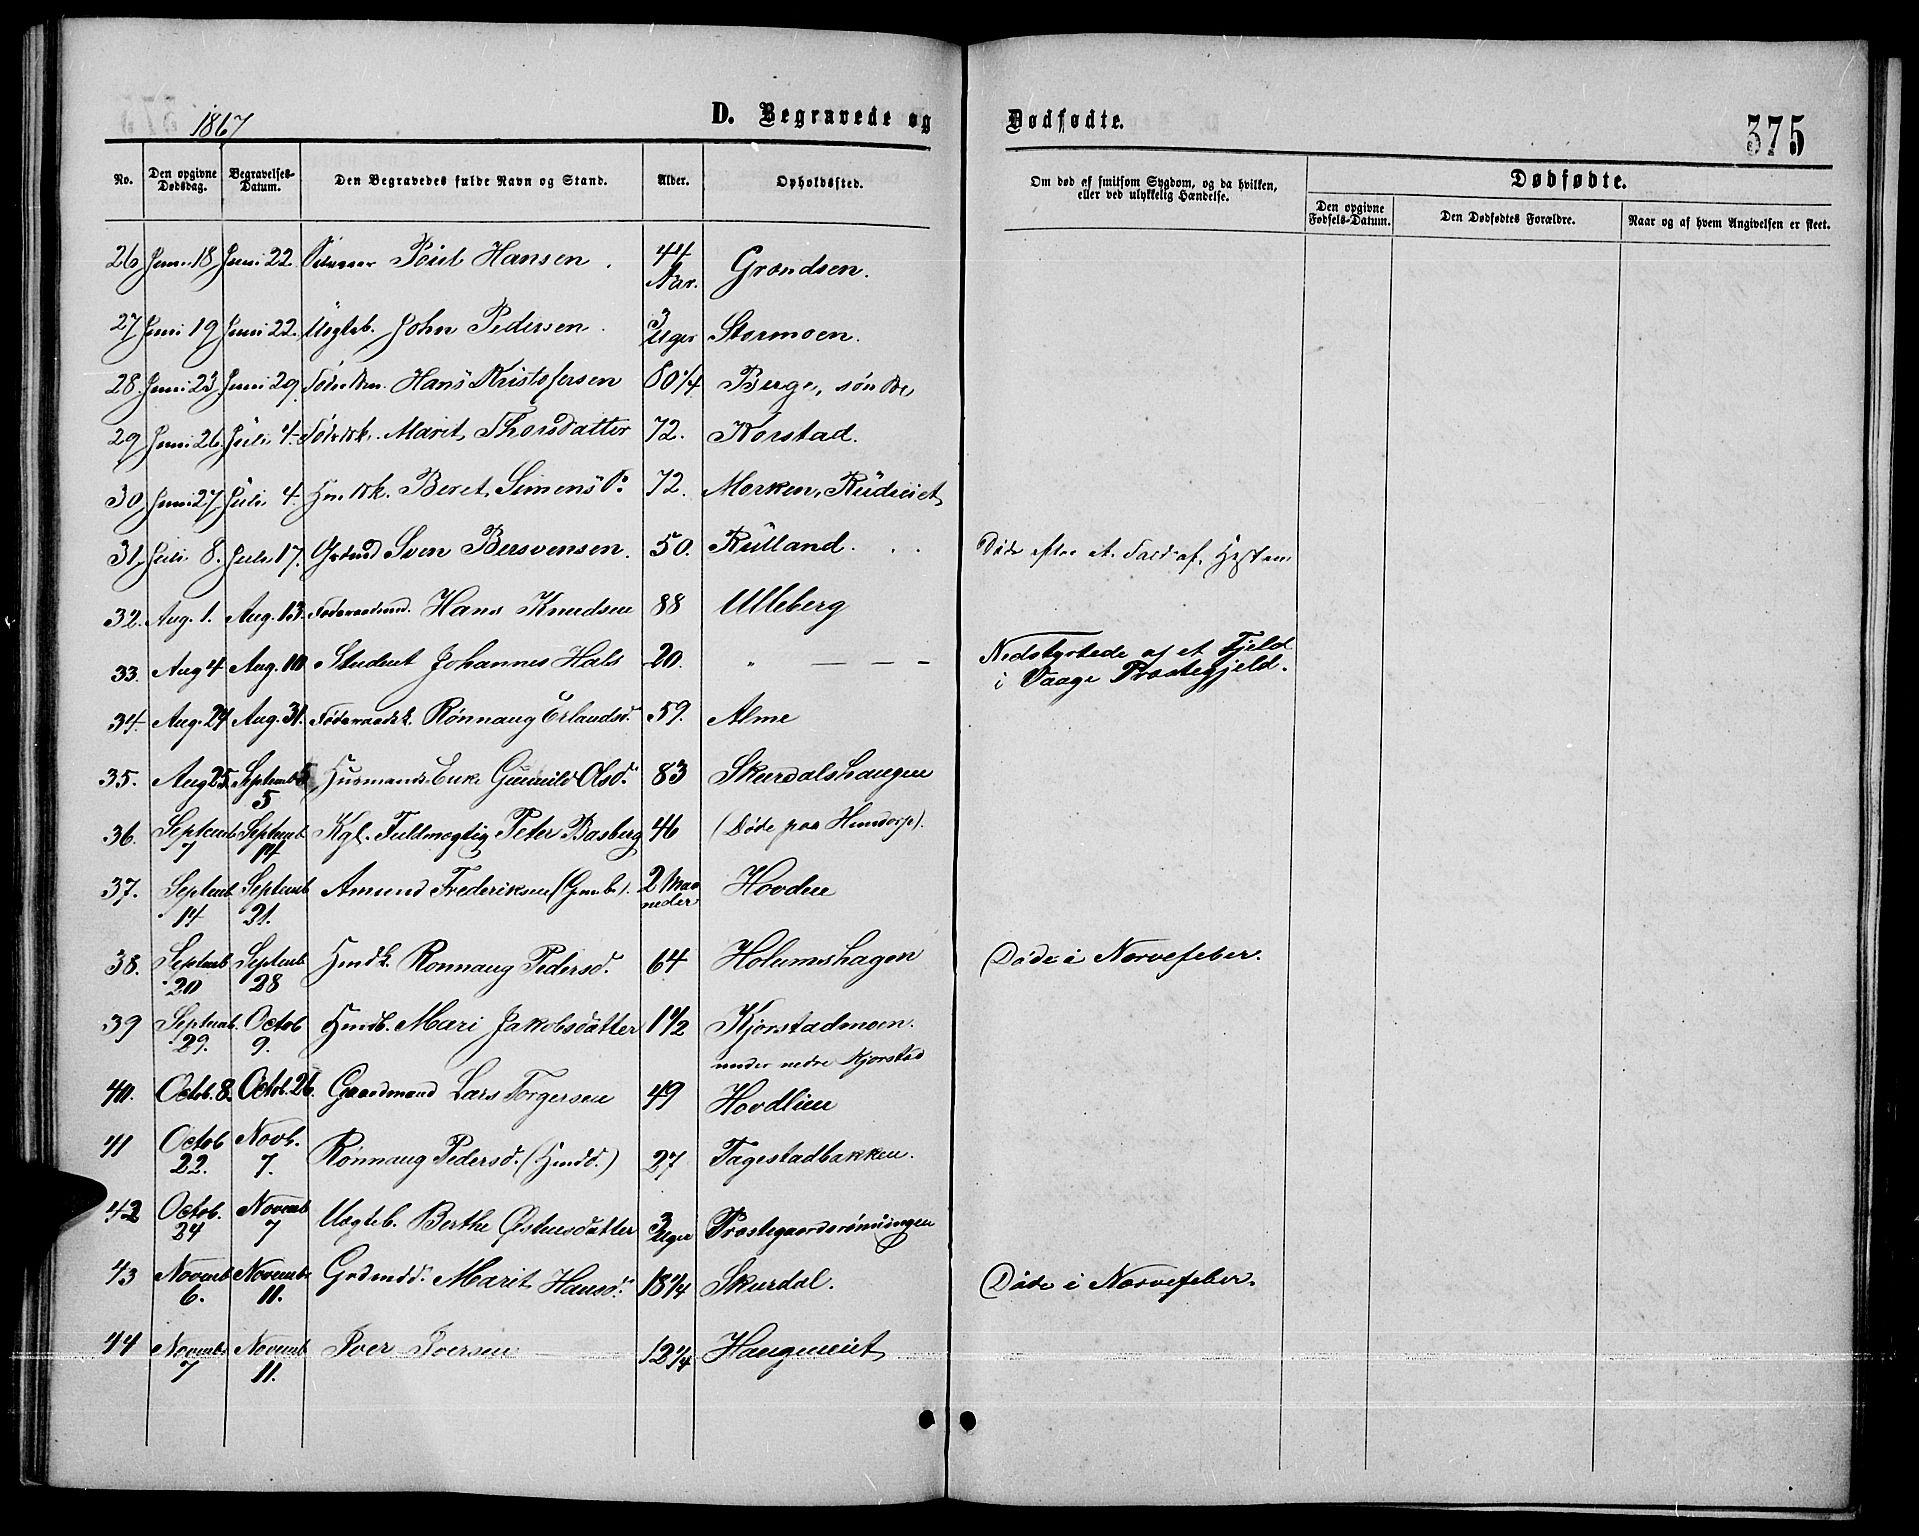 1867
D. Begravede og Dødfødte.
375
No. Den opgivne Dødsdag. Begravelses-Datum. Den Begravedes fulde Navn og Stand. Alder. Opholdssted. Om død af smitsom Sygdom, og da hvilken, eller ved ulykkelig Hændelse. Dødfødte.
Den opgivne Fødsels-Datum. Den Dødfødtes Forældre. Naar og af hvem Angivelsen er skeet.
26 Juni 18 Juni 22. Poul Hansen. 44 Aar. Grøndsen.
27 Juni 19 Juni 22. Uægteb. John Pedersen. 3 Uger Stormoen.
28. Juni 23 Juni 29. Hans Kristofersen 80 1/4 Berge, søndre
29 Juni 26. Juli 4. Marit Thorsdatter 72. Korstad.
30 Juni 27 Juli 4. Hmdk. Beret Simensd. 72. Morken, Rudieiet
31. Juli 8. Juli 17. Grdmd Sven Bersvensen. 50. Rulland. Døde efter et Fald af Hesten
32. Aug. 1. Aug. 13. Føderaadsmd. Hans Knudsen 88 Ulleberg
33. Aug 4 Aug. 10 Student Johannes Hals 20. " — — — Nedstyrtede af et Fjeld i Vaage Prestegjeld.
34. Aug. 24 Aug. 31. Føderaadsk. Rønnaug Erlandsd. 59. Alme
35. Aug 25. Septemb 5 Husmands Enke Gunild Olsd. 83 Skurdalshaugen
36. Septemb 7 Septemb 14 Kgl. Fuldmægtig Peter Basberg 46 (Døde paa Hundorp).
37. Septemb 14 Septemb 21. Amund Frederiksen (Gmb.). 2 Maaneder Hovden
38. Septemb 20 Septemb 28 Hmdk. Rønnaug Pedersd. 64 Holumshagen Døde i Nervefeber.
39 Septemb. 29. Octob 9. Hmdb. Mari Jakobsdatter 1 1/2 Kjorstadmoen. under nedre Kjorstad
40. Octob. 8. Octob. 26. Gaardmand Lars Torgersen 49 Hovdlien
41 Octob 22. Novb. 7. Rønnaug Pedersd. (Hmdd.) 27 Tagestadbakken.
42 Octob. 24 Novemb 7 Uægteb. Berthe Østensdatter 3 Uger Prestegaardsrømningen
43 Novemb 6. Novemb. 11. Grdmdd. Marit Hansd. 18 1/4 Skurdal. Døde i Nervefeber.
44 Novemb. 7 Novemb 11. Iver Iversen 12 1/4 Haugeneiet